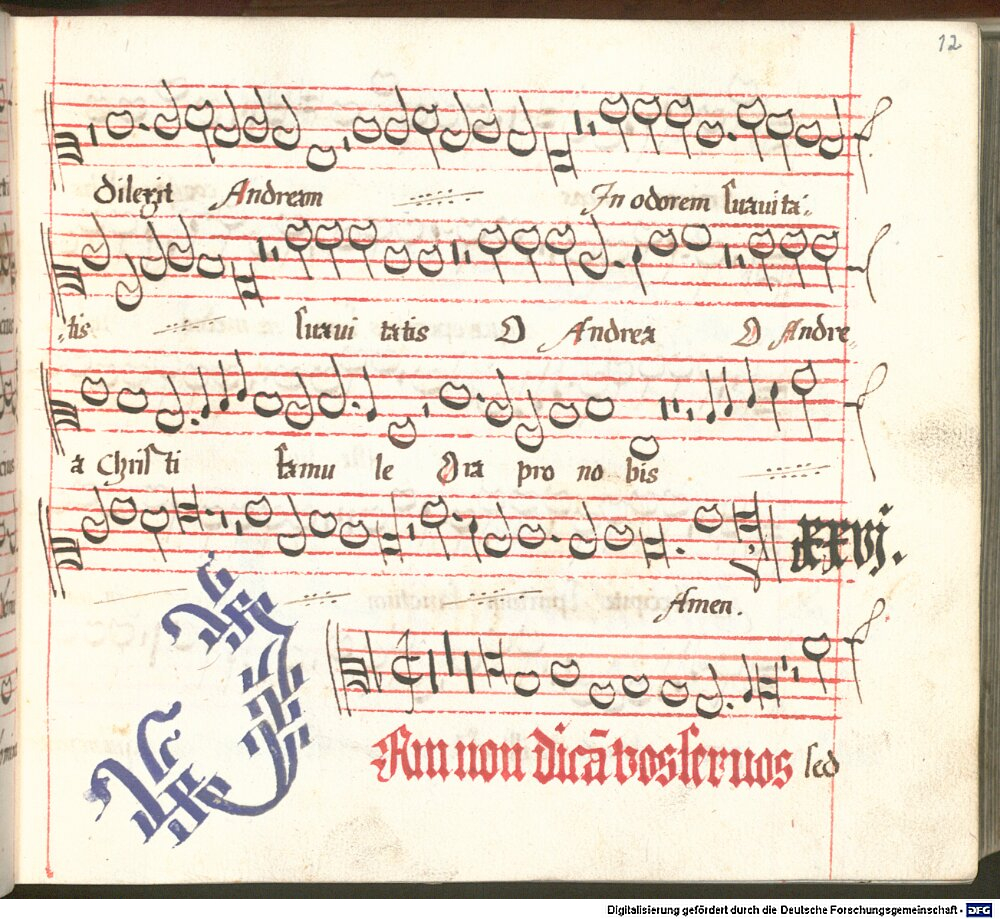 12
dilexit Andream In odorem suauita-
-tis suaui tatis O Andrea O Andre
a Christi famu le Ora pro no bis
xxvj.
Amen.
Iam non dicā vos seruos sed
Digitalisierung gefördert durch die Deutsche Forschungsgemeinschaft - DFG